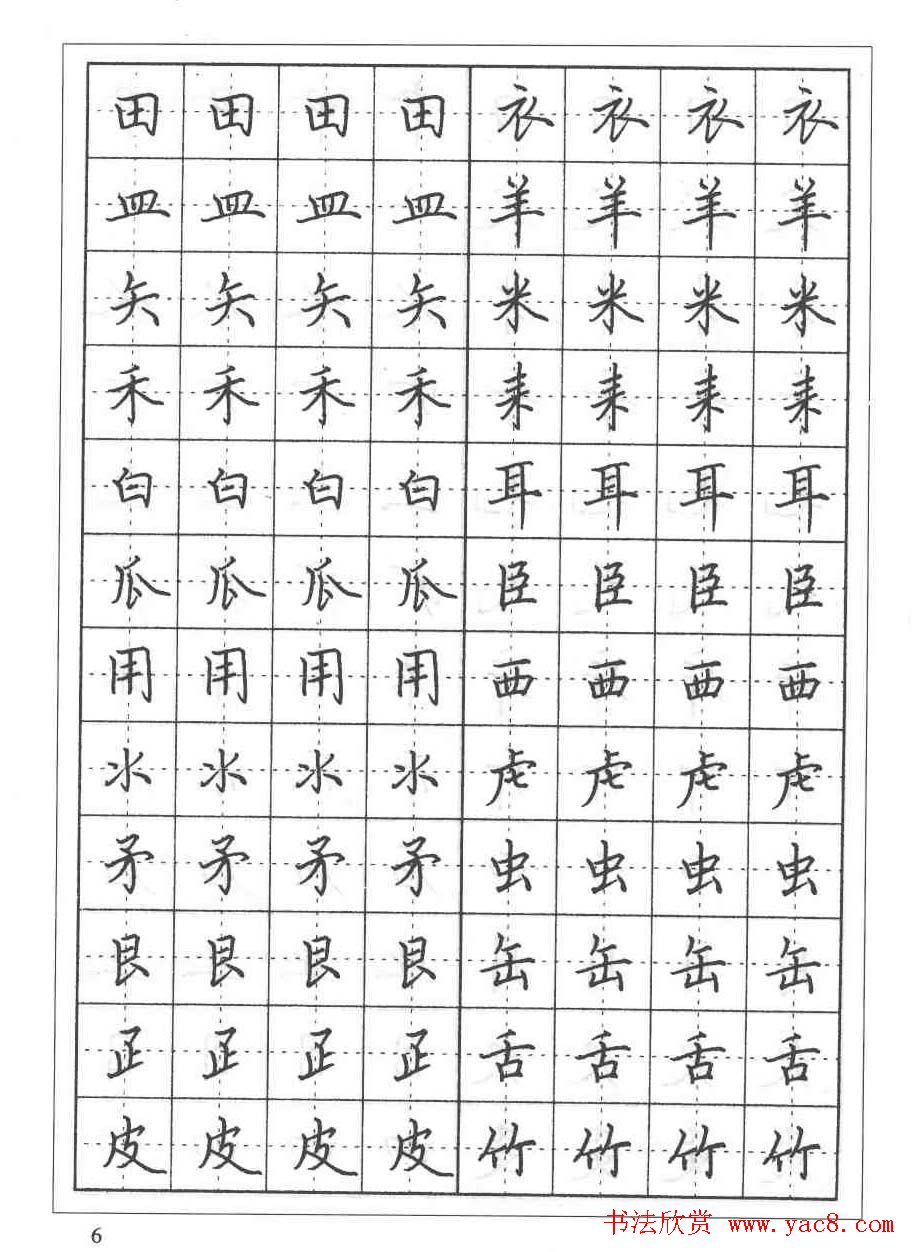 田 田 田 田 衣 衣 衣 衣
皿 皿 皿 皿 羊 羊 羊 羊
矢 矢 矢 矢 米 米 米 米
禾 禾 禾 禾 耒 耒 耒 耒
白 白 白 白 耳 耳 耳 耳
瓜 瓜 瓜 瓜 臣 臣 臣 臣
用 用 用 用 西 西 西 西
氺 氺 氺 氺 虍 虍 虍 虍
矛 矛 矛 矛 虫 虫 虫 虫
艮 艮 艮 艮 缶 缶 缶 缶
⺪ ⺪ ⺪ ⺪ 舌 舌 舌 舌
皮 皮 皮 皮 竹 竹 竹 竹
6
书法欣赏 www.yac8.com